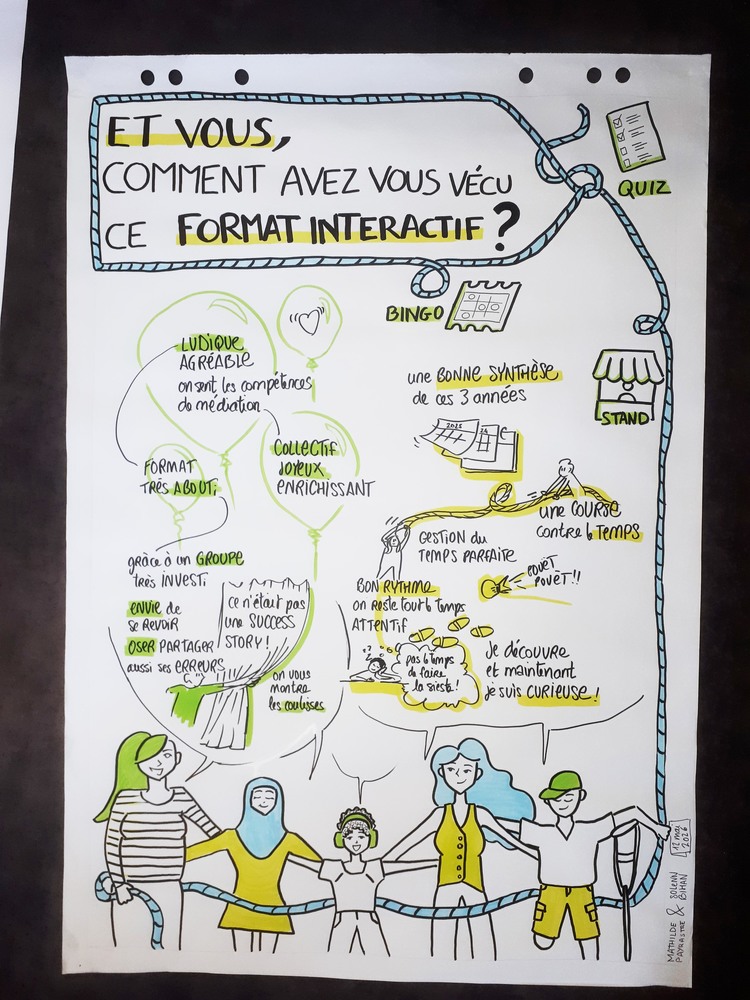 ET VOUS,
COMMENT AVEZ VOUS VÉCU
CE FORMAT INTERACTIF ?
QUIZ
BINGO
STAND
LUDIQUE
AGRÉABLE
on sent les compétences
de médiation
COLLECTIF
JOYEUX
ENRICHISSANT
FORMAT
TRÈS ABOUTI
grâce à un GROUPE
très INVESTI
ENVIE de
SE REVOIR
OSER PARTAGER
aussi ses ERREURS
ce n'était pas
une SUCCESS
STORY !
on vous
montre
les coulisses
une BONNE SYNTHÈSE
de ces 3 années
2025
une COURSE
contre le TEMPS
GESTION du
TEMPS PARFAITE
POUËT
POUËT !!
BON RYTHME
on reste tout le temps
ATTENTIF
pas le temps
de faire
la sieste !
Je découvre
et maintenant
je suis CURIEUSE !
12 mai
2026
MATHILDE & SOLENN
PAYRASTRE BIHAN